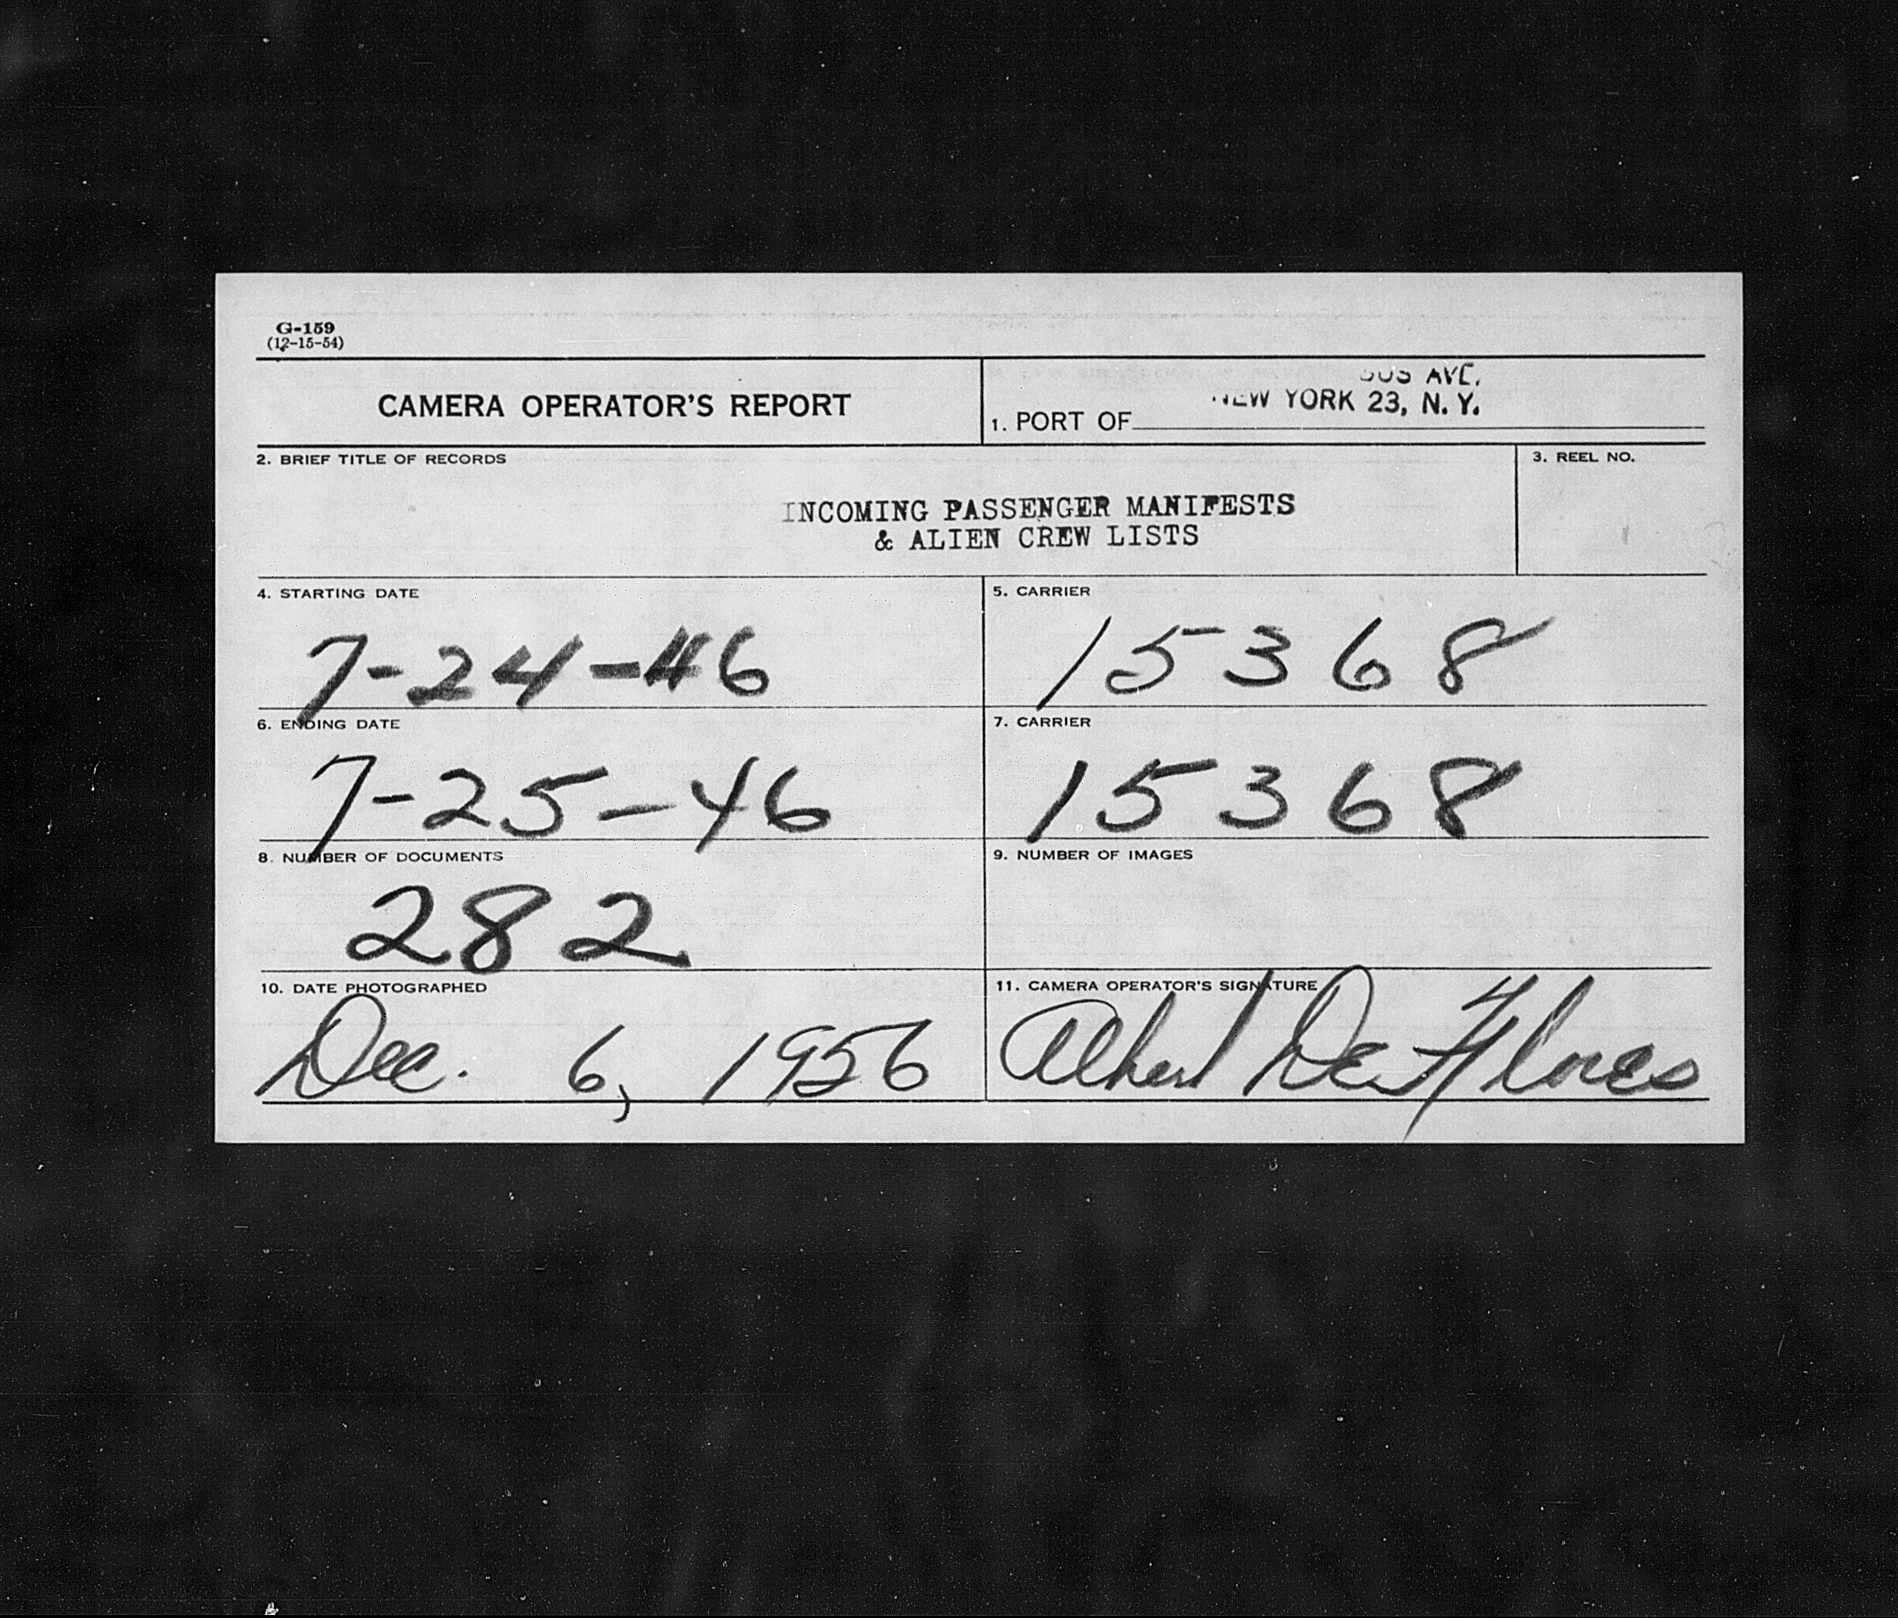 G-159
(12-15-54)
CAMERA OPERATOR'S REPORT
AVE.
1. PORT OF NEW YORK 23, N. Y.
2. BRIEF TITLE OF RECORDS
3. REEL NO.
INCOMING PASSENGER MANIFESTS
& ALIEN CREW LISTS
4. STARTING DATE
5. CARRIER
7-24-46
15368
6. ENDING DATE
7. CARRIER
7-25-46
15368
8. NUMBER OF DOCUMENTS
9. NUMBER OF IMAGES
282
10. DATE PHOTOGRAPHED
11. CAMERA OPERATOR'S SIGNATURE
Dec. 6, 1956
Albert De Flores